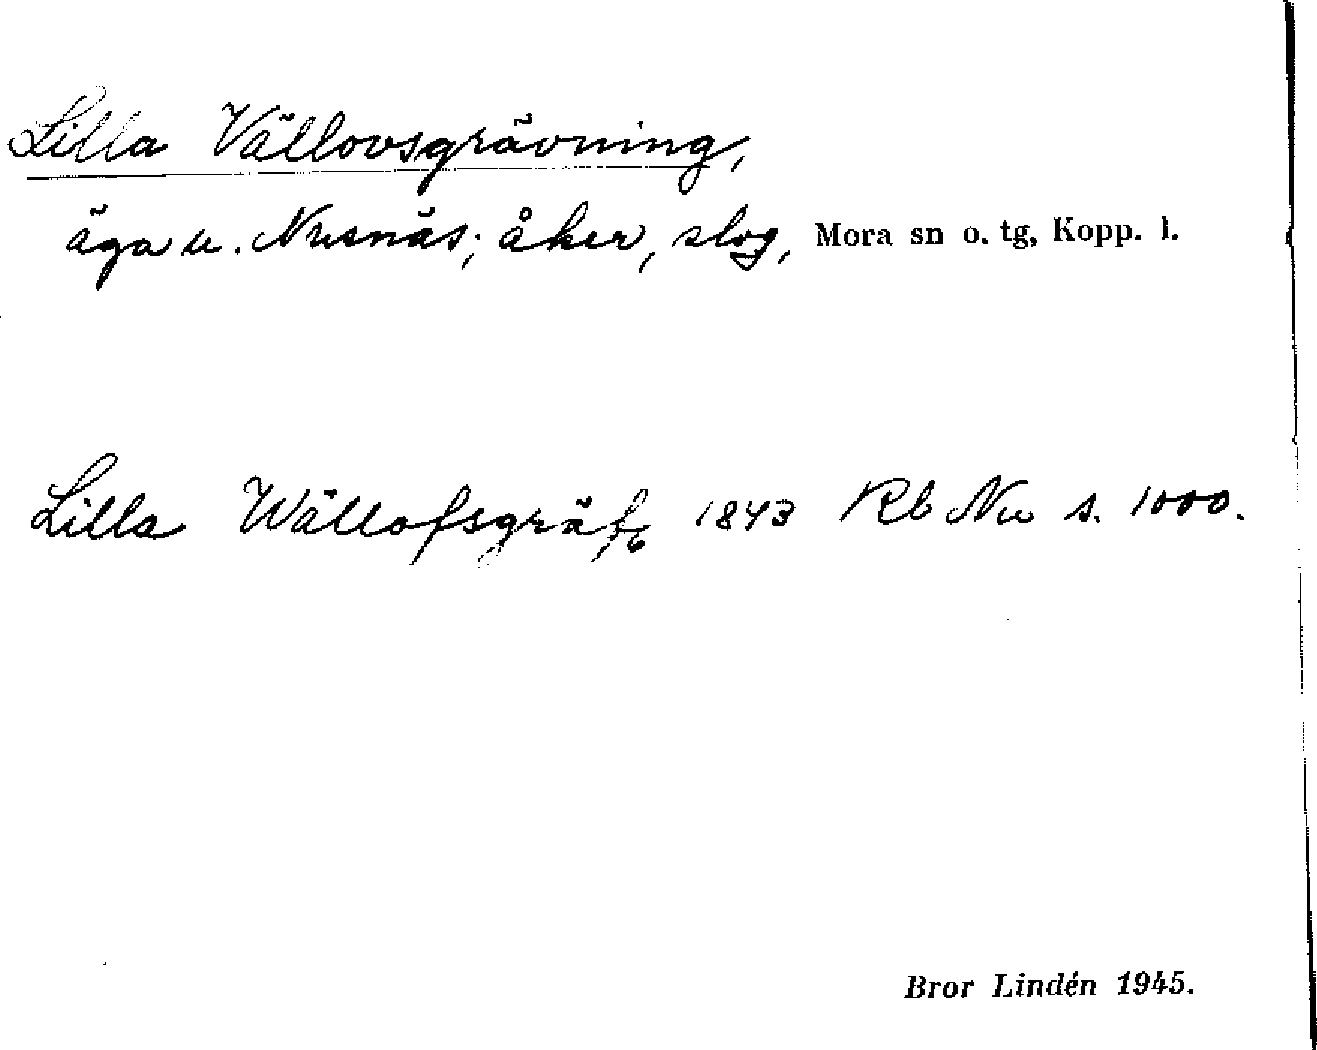 Lilla Vällovsgrävning,
äga u. Nusnäs; åker, slog, Mora sn o. tg, Kopp. l.
Lilla Wällofsgräfg 1843 Rb Nu s. 1000.
Bror Lindén 1945.